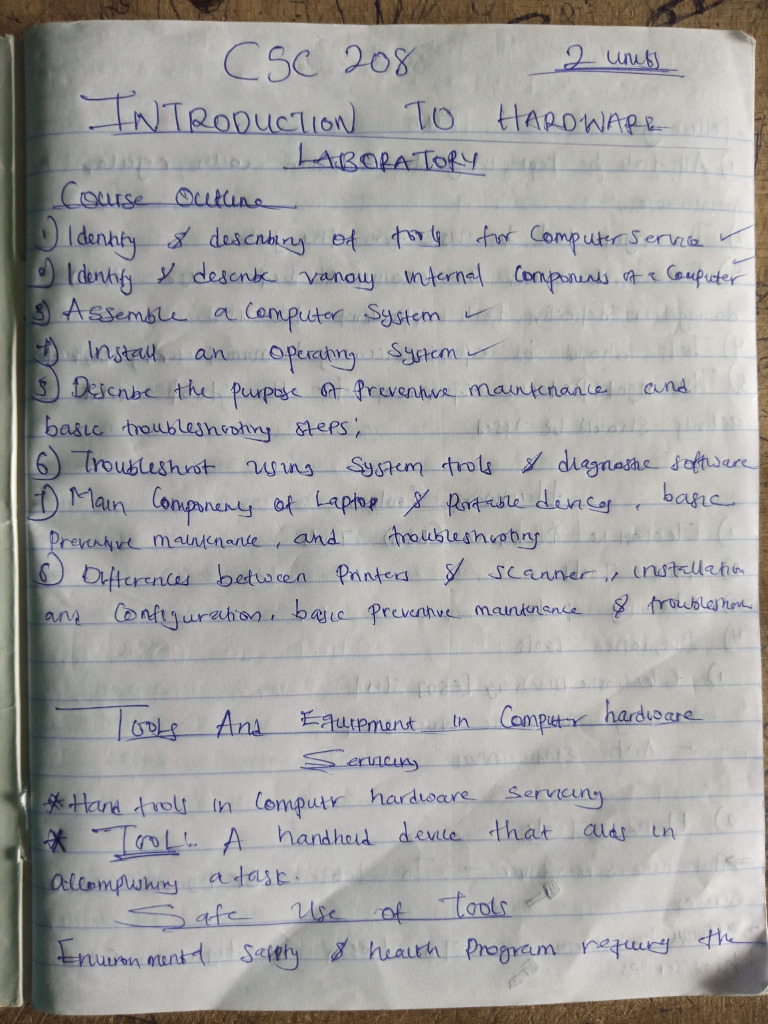 CSC 208 2 units
INTRODUCTION TO HARDWARE
LABORATORY
Course Outline
1) Identify & describing of tools for Computer Service ✓
2) Identify & describe various internal Components of a Computer ✓
3) Assemble a Computer System ✓
4) Install an Operating System ✓
5) Describe the purpose of Preventive maintenance and
basic troubleshooting steps;
6) Troubleshoot using System tools & diagnostic software
7) Main Components of Laptop & Portable devices, basic
Preventive maintenance, and troubleshooting
8) Differences between Printers & scanner, installation
and Configuration, basic preventive maintenance &
Tools And Equipment in Computer hardware
Servicing
* Hand tools in Computer hardware Servicing
* TOOL: A handheld device that aids in
accomplishing a task.
Safe Use of Tools
Environmental Safety & health Program requires the